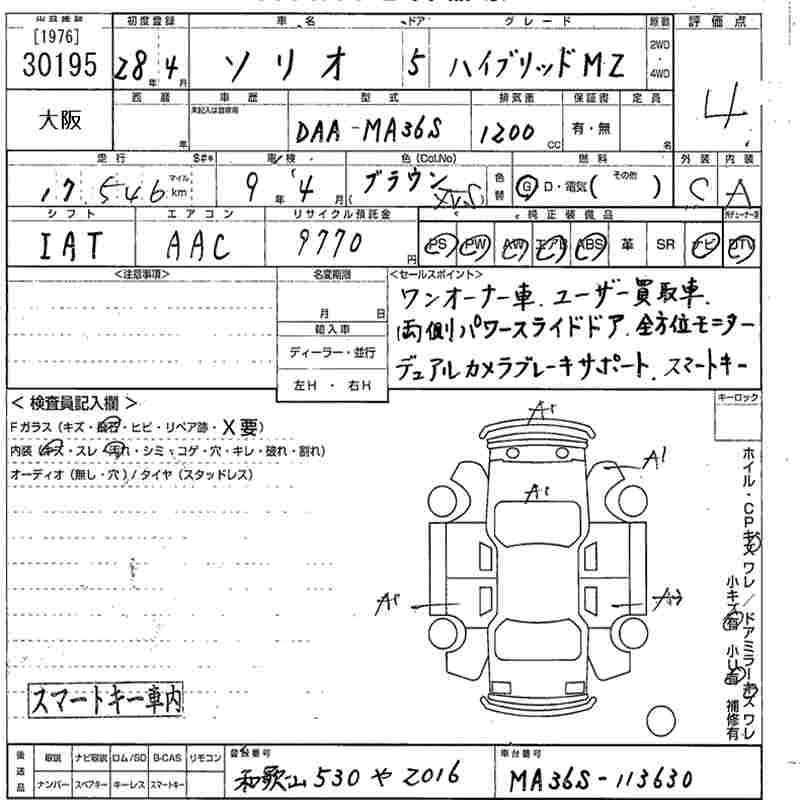 [1976]
初度登録 車名 ドア グレード 原動 評価点
30195 28年4月 ソリオ 5 ハイブリッドMZ 2WD・4WD
4
大阪 車歴 型式 排気量 保証書 定員
未記入は自家用
年 DAA-MA36S 1200 CC 有・無 名
走行 S#* 車検 色(Col.No) 燃料 外装 内装
17,546 マイル km 9年4月 ブラウン 色替 G D・電気( その他 ) C A
シフト エアコン リサイクル預託金 純正装備品
IAT AAC 9770円 PS PW AW エアB ABS 革 SR ナビ DTV
<注意事項> 名変期限 <セールスポイント>
月 日 ワンオーナー車.ユーザー買取車.
輸入車 両側パワースライドドア.全方位モニター
ディーラー・並行 デュアルカメラブレーキサポート.スマートキー
左H・右H
<検査員記入欄> キーロック
Fガラス(キズ・飛石・ヒビ・リペア跡・X要)
内装(キズ・スレ・汚れ・シミ・コゲ・穴・キレ・破れ・割れ)
オーディオ(無し・穴)/タイヤ(スタッドレス)
A1
A1
A1
A1
A3
ホイル・CPキズ ワレ/ドアミラーキズ ワレ
小キズ有 小U有 補修有
スマートキー車内
後送品 取説 ナビ取説 ロム/SD B-CAS リモコン 登録番号 車台番号
ナンバー スペアキー キーレス スマートキー 和歌山530や2016 MA36S-113630